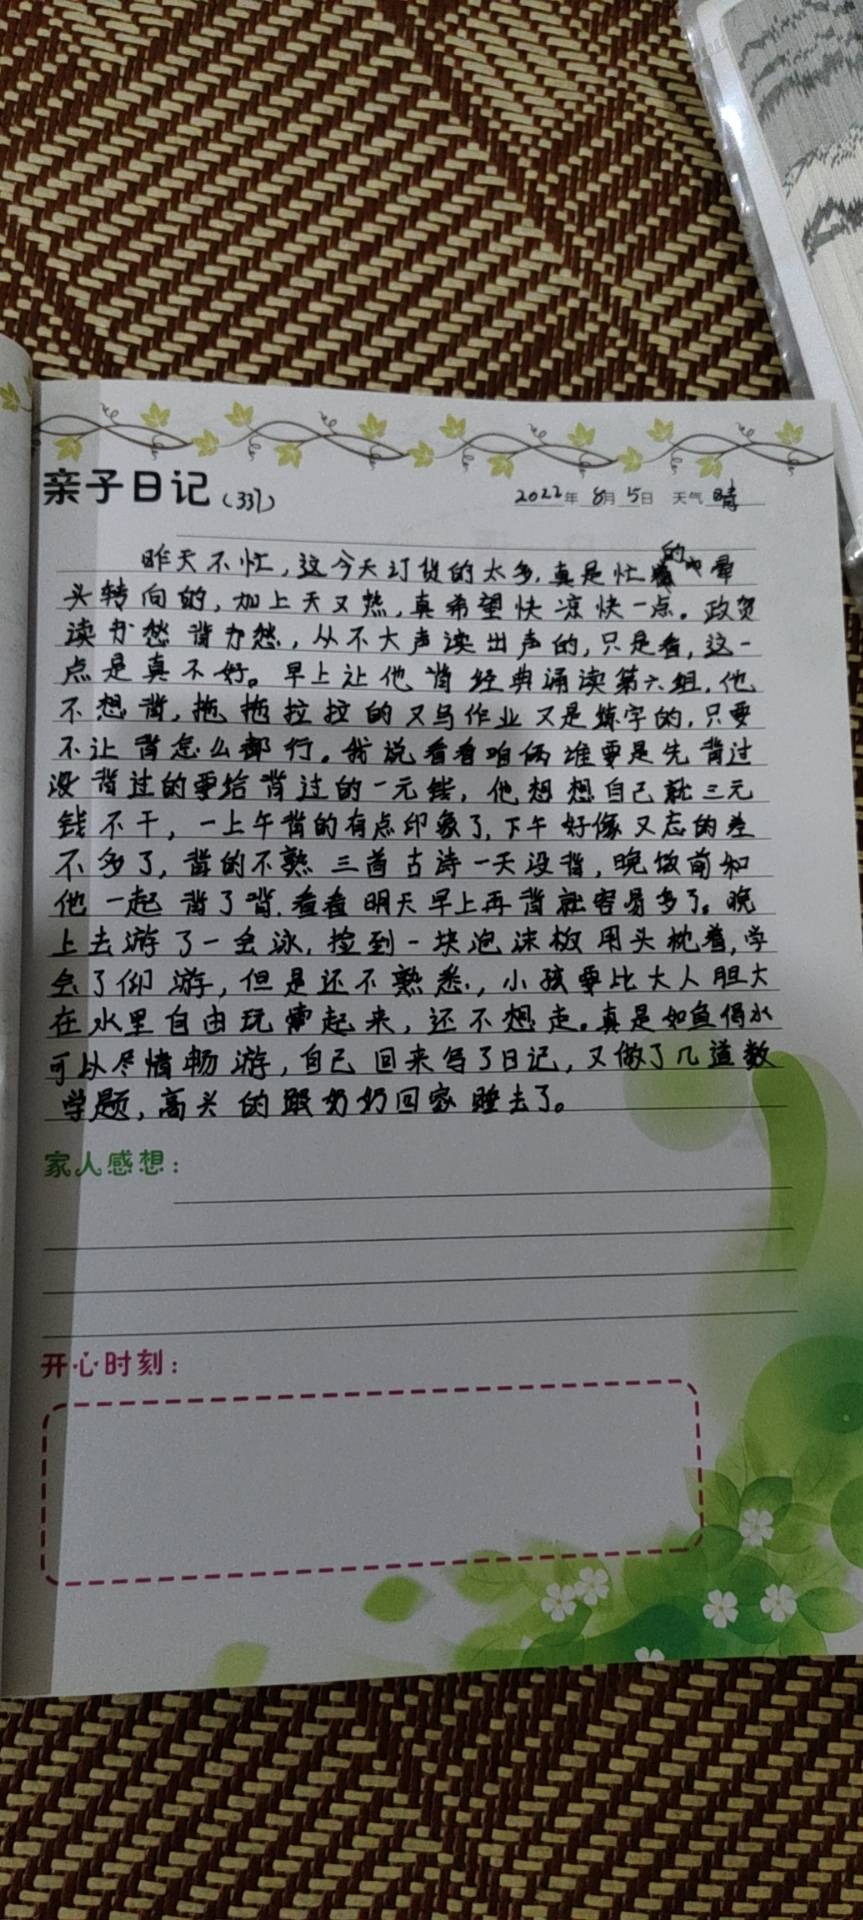 亲子日记（337）
2022年 8月 5日 天气 晴
昨天不忙，这今天订货的太多，真是忙的晕
头转向的，加上天又热，真希望快凉快一点。政贺
读书愁背书愁，从不大声读出声的，只是看，这一
点是真不好。早上让他背经典诵读第六组，他
不想背，拖拖拉拉的又写作业又是练字的，只要
不让背怎么都行。我说看看咱俩谁要是先背过
没背过的要给背过的一元钱，他想想自己就三元
钱不干，一上午背的有点印象了，下午好像又忘的差
不多了，背的不熟三首古诗一天没背，晚饭前和
他一起背了背，看看明天早上再背就容易多了。晚
上去游了一会泳，捡到一块泡沫板用头枕着，学
会了仰游，但是还不熟悉，小孩要比大人胆大
在水里自由玩耍起来，还不想走。真是如鱼得水
可以尽情畅游，自己回来写了日记，又做了几道数
学题，高兴的跟奶奶回家睡去了。
家人感想：
开心时刻：